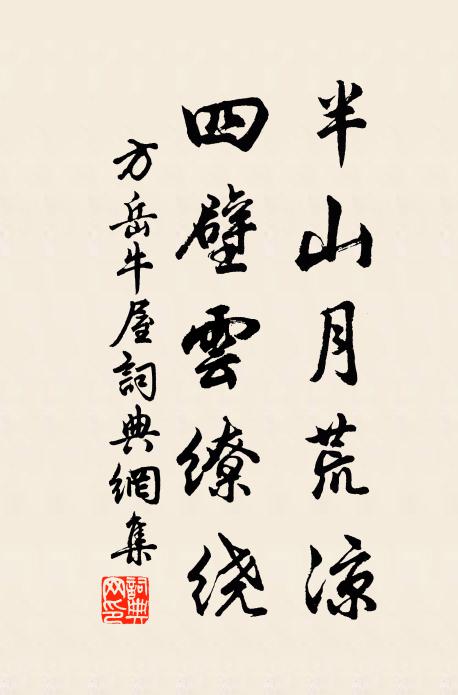 半山月荒涼
四壁雲繚绕
方岳牛屋詞典網集
詞典网印